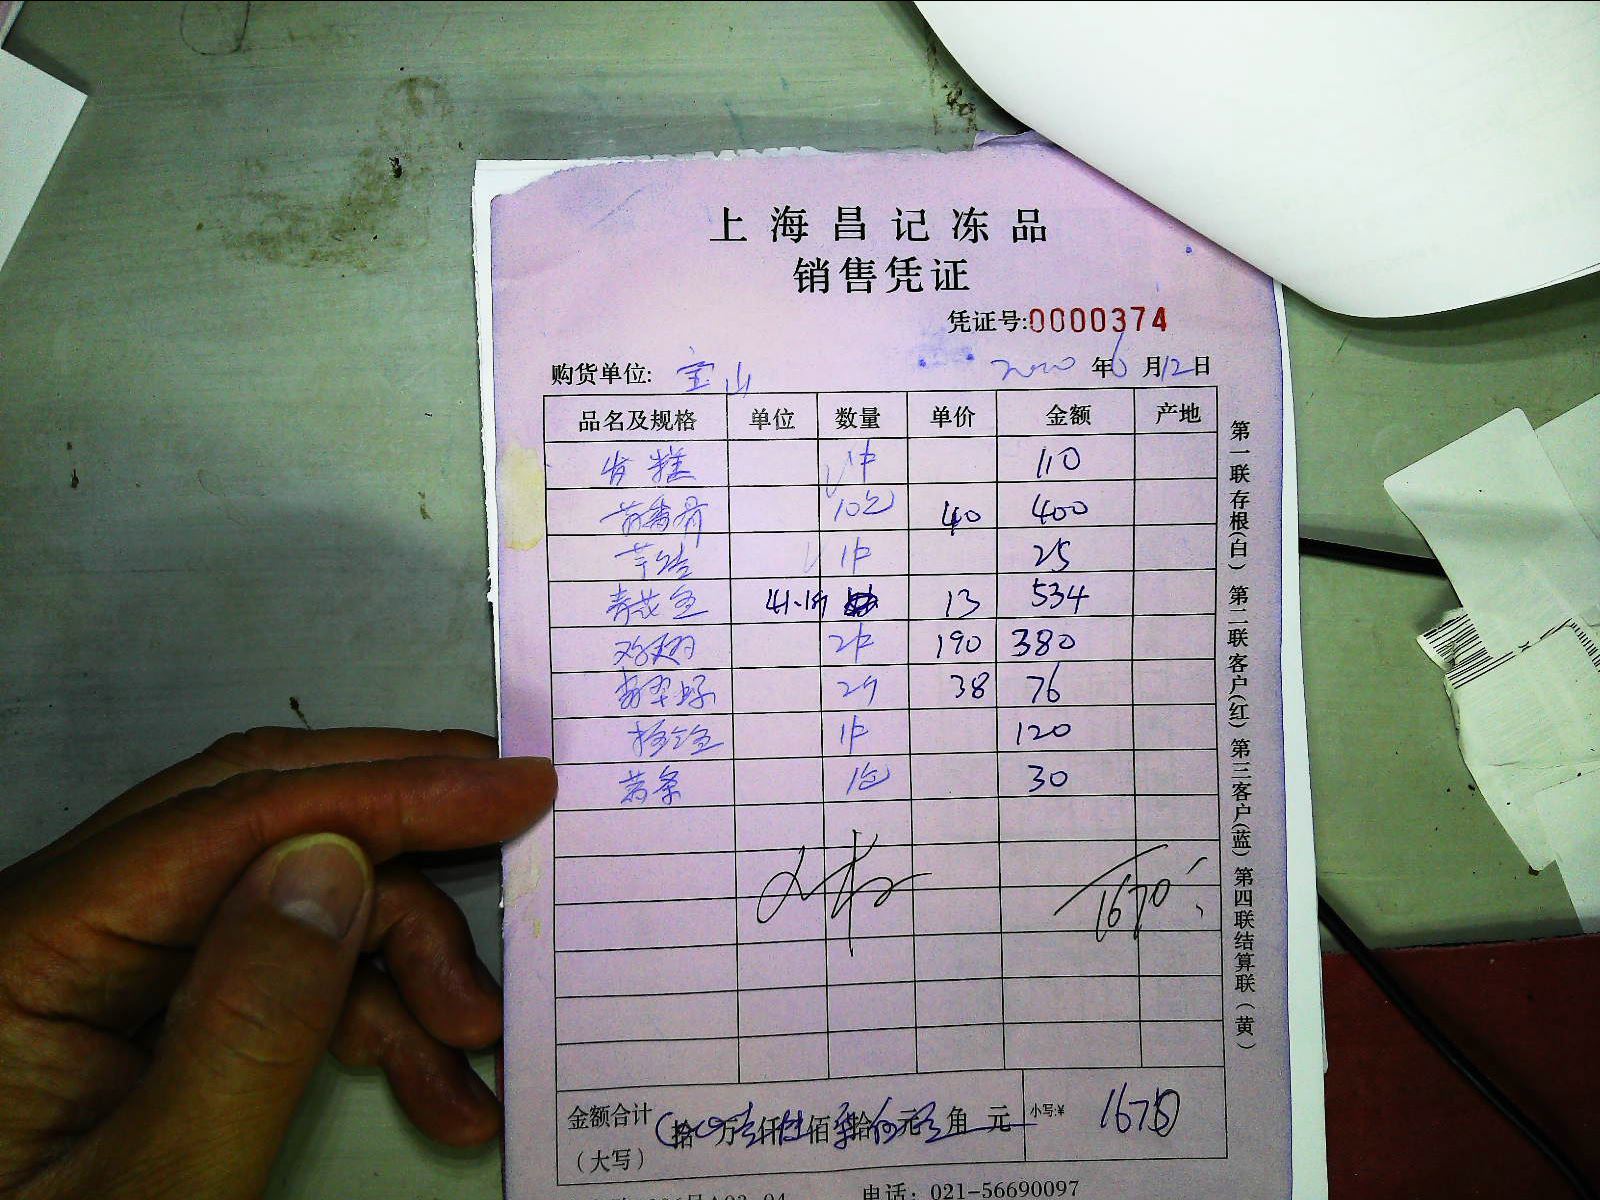 上海昌记冻品
销售凭证
凭证号:0000374
购货单位: 宝山 2020年6月12日
品名及规格 单位 数量 单价 金额 产地
发糕 1件 110
10包 40 400
1件 25
41.1斤 13 534
鸡翅 2件 190 380
2个 38 76
1件 120
薯条 1包 30
1670
金额合计 拾 万 仟 佰 拾 元 角 元 小写:¥ 1675
(大写)
电话: 021-56690097
第一联存根(白) 第二联客户(红) 第三客户(蓝) 第四联结算联(黄)